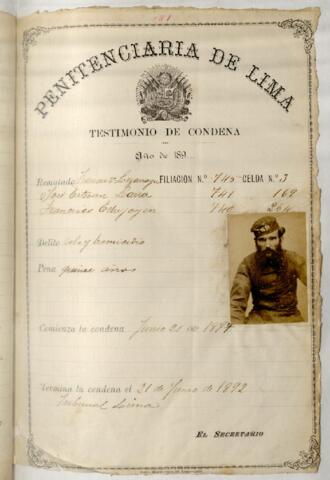 181
PENITENCIARIA DE LIMA
TESTIMONIO DE CONDENA
Año de 189
Rematado FILIACIÓN N.º 745 CELDA N.º 3
José Lara 741 169
Francisco 740 264
Delito robo y homicidio
Pena quince años
Comienza la condena Junio 21 de 1877
Termina la condena el 21 de Junio de 1892
Tribunal Lima
EL SECRETARIO